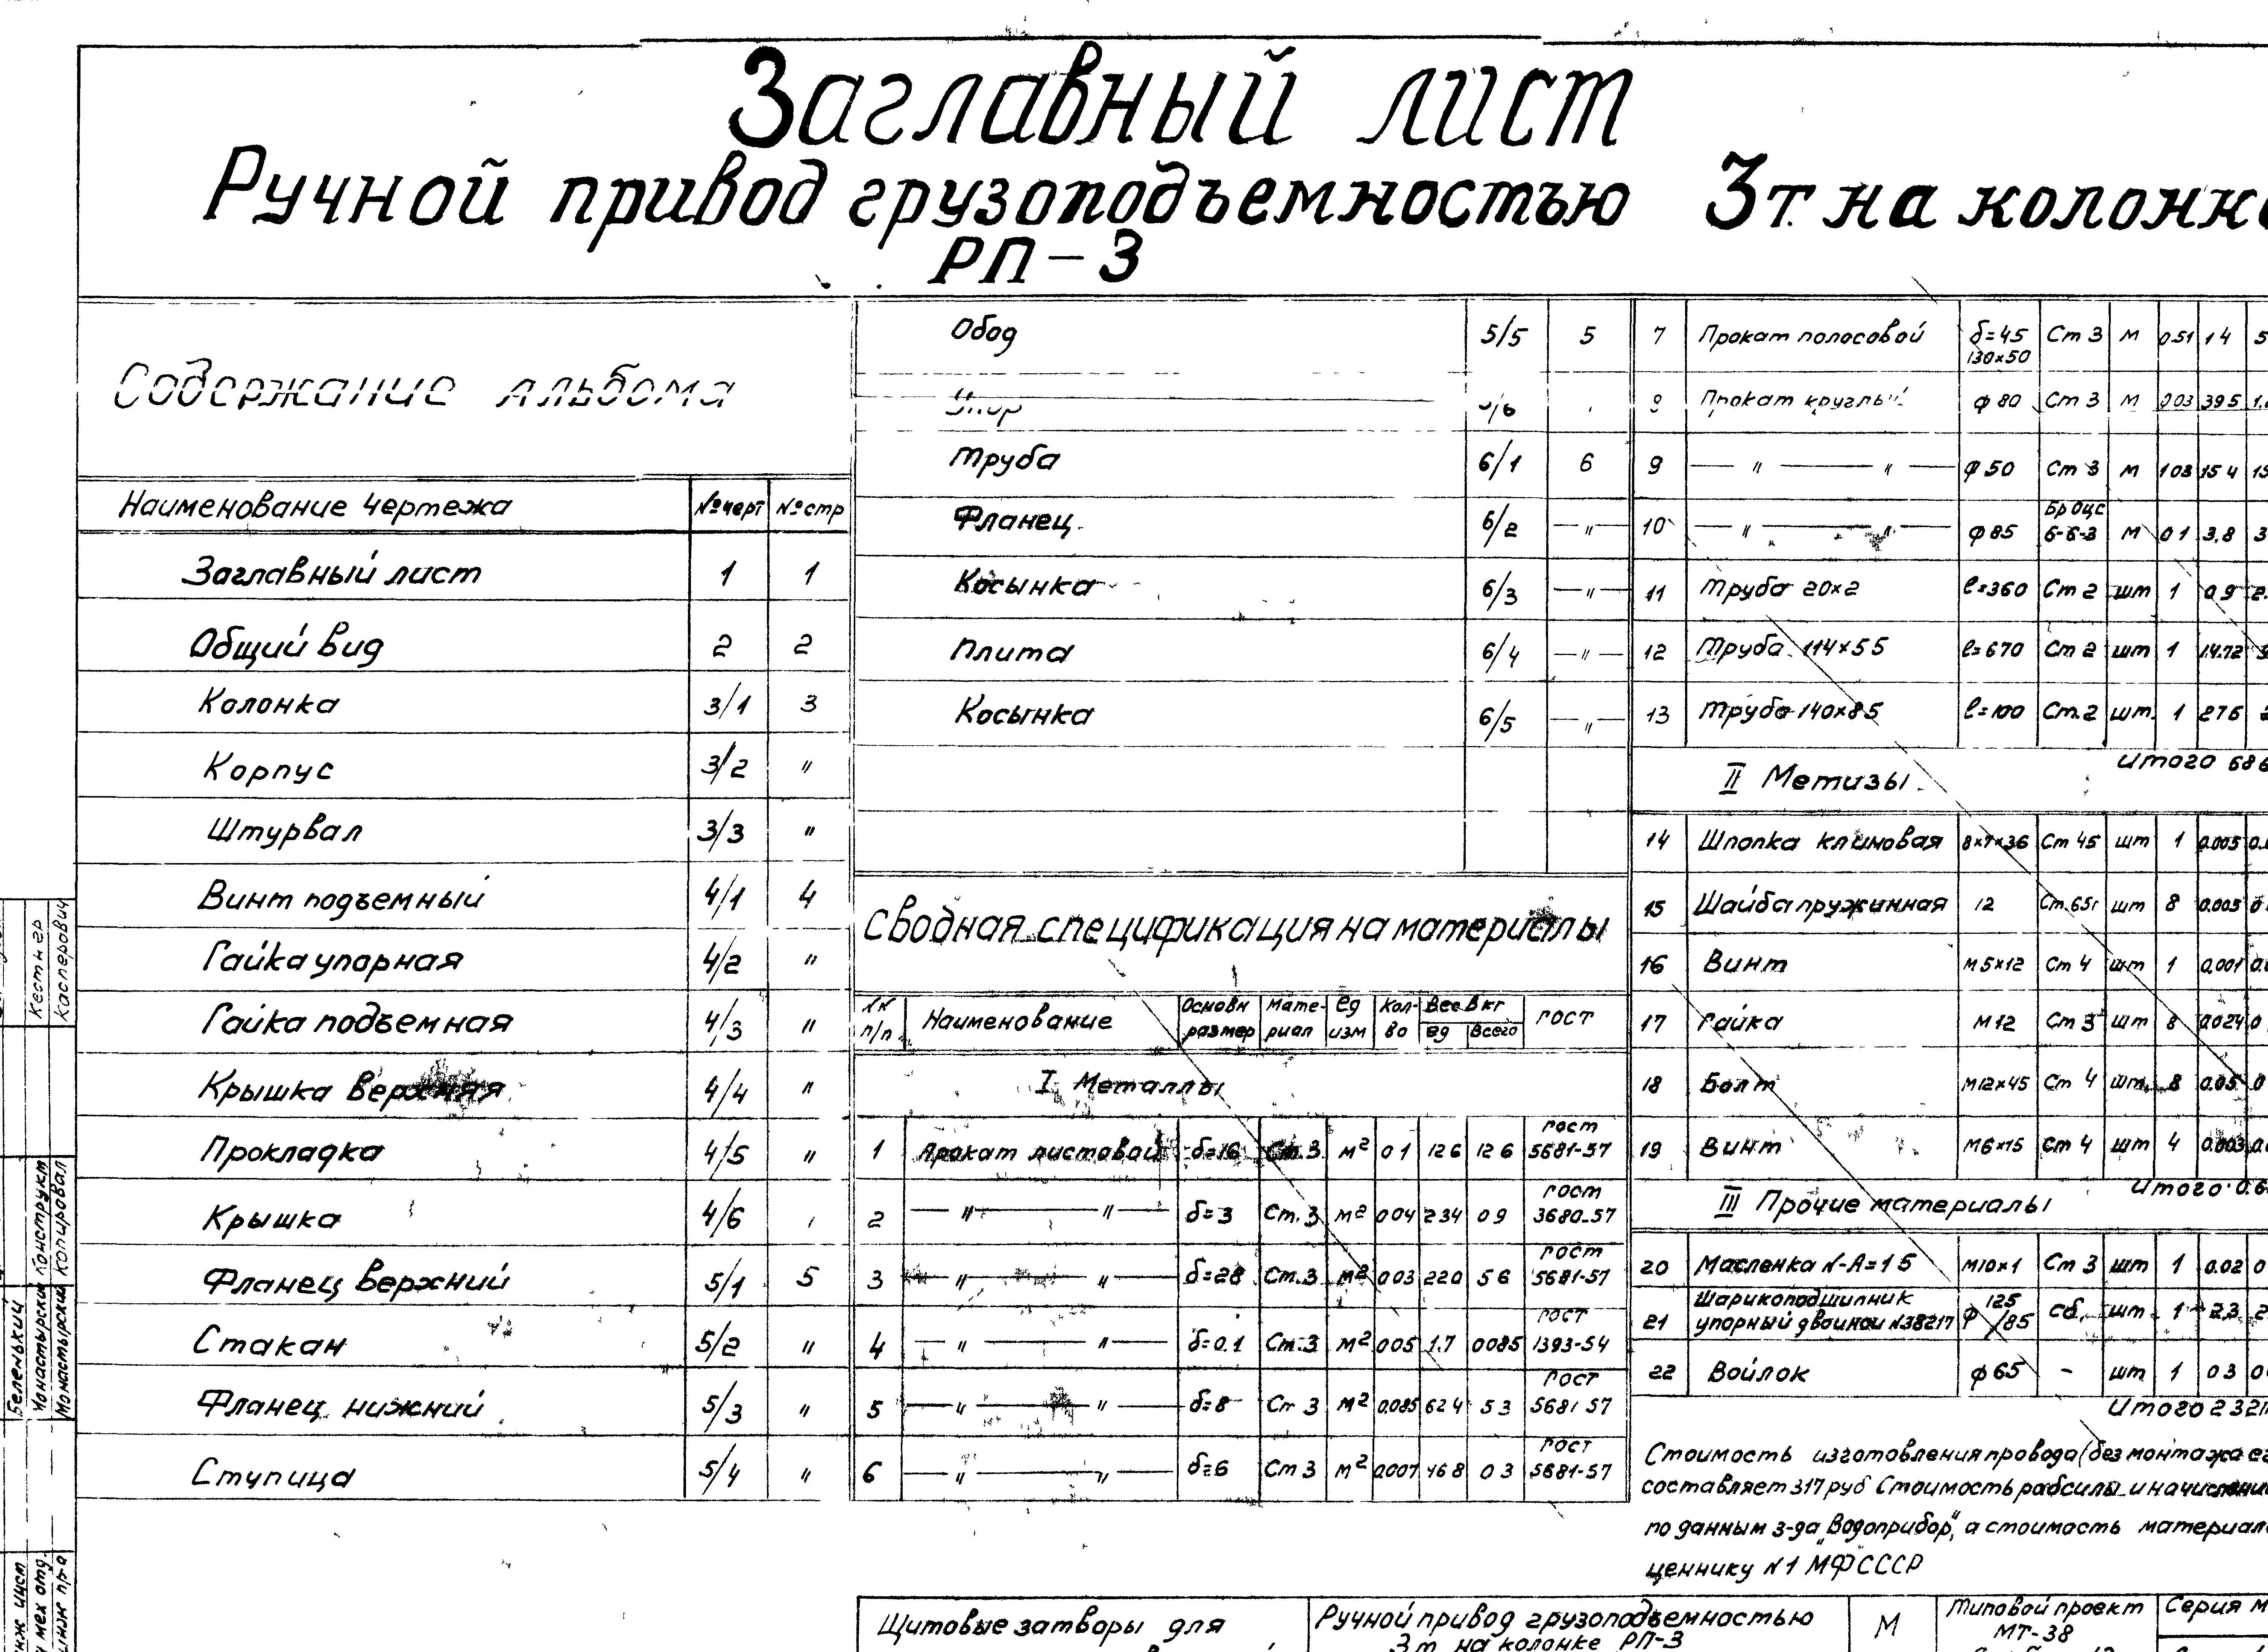 Заглавный лист
Ручной привод грузоподъемностью 3т на колонке
РП-3
Содержание альбома
Наименование чертежа №черт №стр
Заглавный лист 1 1
Общий вид 2 2
Колонка 3/1 3
Корпус 3/2 "
Штурвал 3/3 "
Винт подъемный 4/1 4
Гайка упорная 4/2 "
Гайка подъемная 4/3 "
Крышка верхняя 4/4 "
Прокладка 4/5 "
Крышка 4/6
Фланец верхний 5/1 5
Стакан 5/2 "
Фланец нижний 5/3 "
Ступица 5/4 "
Обод 5/5 5
Труба 6/1 6
Фланец 6/2 — " —
Косынка 6/3 — " —
Плита 6/4 — " —
Косынка 6/5 — " —
Сводная спецификация на материалы
п/п Наименование Основн размер Мате-риал Ед изм Кол-во Вес в кг ед всего ГОСТ
I Металлы
1 Прокат листовой δ=16 Ст.3 м² 0 1 12 6 12 6 ГОСТ 5681-57
2 — " — " — δ=3 Ст.3 м² 0 04 23 4 0 9 ГОСТ 3680-57
3 — " — " — δ=28 Ст.3 м² 0 03 220 5 6 ГОСТ 5681-57
4 — " — " — δ=0.1 Ст.3 м² 0 05 1.7 0085 ГОСТ 1393-54
5 — " — " — δ=8 Ст 3 м² 0.085 62 4 5 3 ГОСТ 5681 57
6 — " — " — δ=6 Ст 3 м² 0.007 46 8 0 3 ГОСТ 5681-57
7 Прокат полосовой δ=45 130×50 Ст 3 м 0.51 1 4
Прокат круглый ф 80 Ст 3 м 0 03 39 5
9 — " — " — ф 50 Ст 3 м 1 03 15 4
10 — " — " — ф 85 Бр ОЦС 6-6-3 м 0 1 3,8
11 Труба 20×2 ℓ=360 Ст 2 шт 1 0 9
12 Труба 114×5 5 ℓ=670 Ст 2 шт 1 14.72
13 Труба 140×8 5 ℓ=100 Ст.2 шт. 1 2 76
Итого 68 6
II Метизы
14 Шпонка клиновая 8×7×36 Ст 45 шт 1 0.005
15 Шайба пружинная 12 Ст.65г шт 8 0.005
16 Винт М 5×12 Ст 4 шт 1 0,001
17 Гайка М 12 Ст 3 шт 8 0.024
18 Болт М12×45 Ст 4 шт. 8 0.05
19 Винт М6×15 Ст 4 шт 4 0.003
Итого 0.6
III Прочие материалы
20 Масленка N-А=1 5 М10×1 Ст 3 шт 1 0.02
21 Шарикоподшипник упорный двойной N38217 ф 125/85 сб. шт 1 2.3
22 Войлок ф 65 - шт 1 0 3
Итого 2 32
Стоимость изготовления провода (без монтажа ег
составляет 317 руб Стоимость рабсилы и начислени
по данным з-да „Водоприбор", а стоимость материал
ценнику N1 МФСССР
Щитовые затворы для
Ручной привод грузоподъемностью
3т на колонке РП-3
М
Типовой проект
МТ-38
Серия М
Кестнер
Касперович
Конструкт
Копировал
Беленький
Монастырский
Монастырский